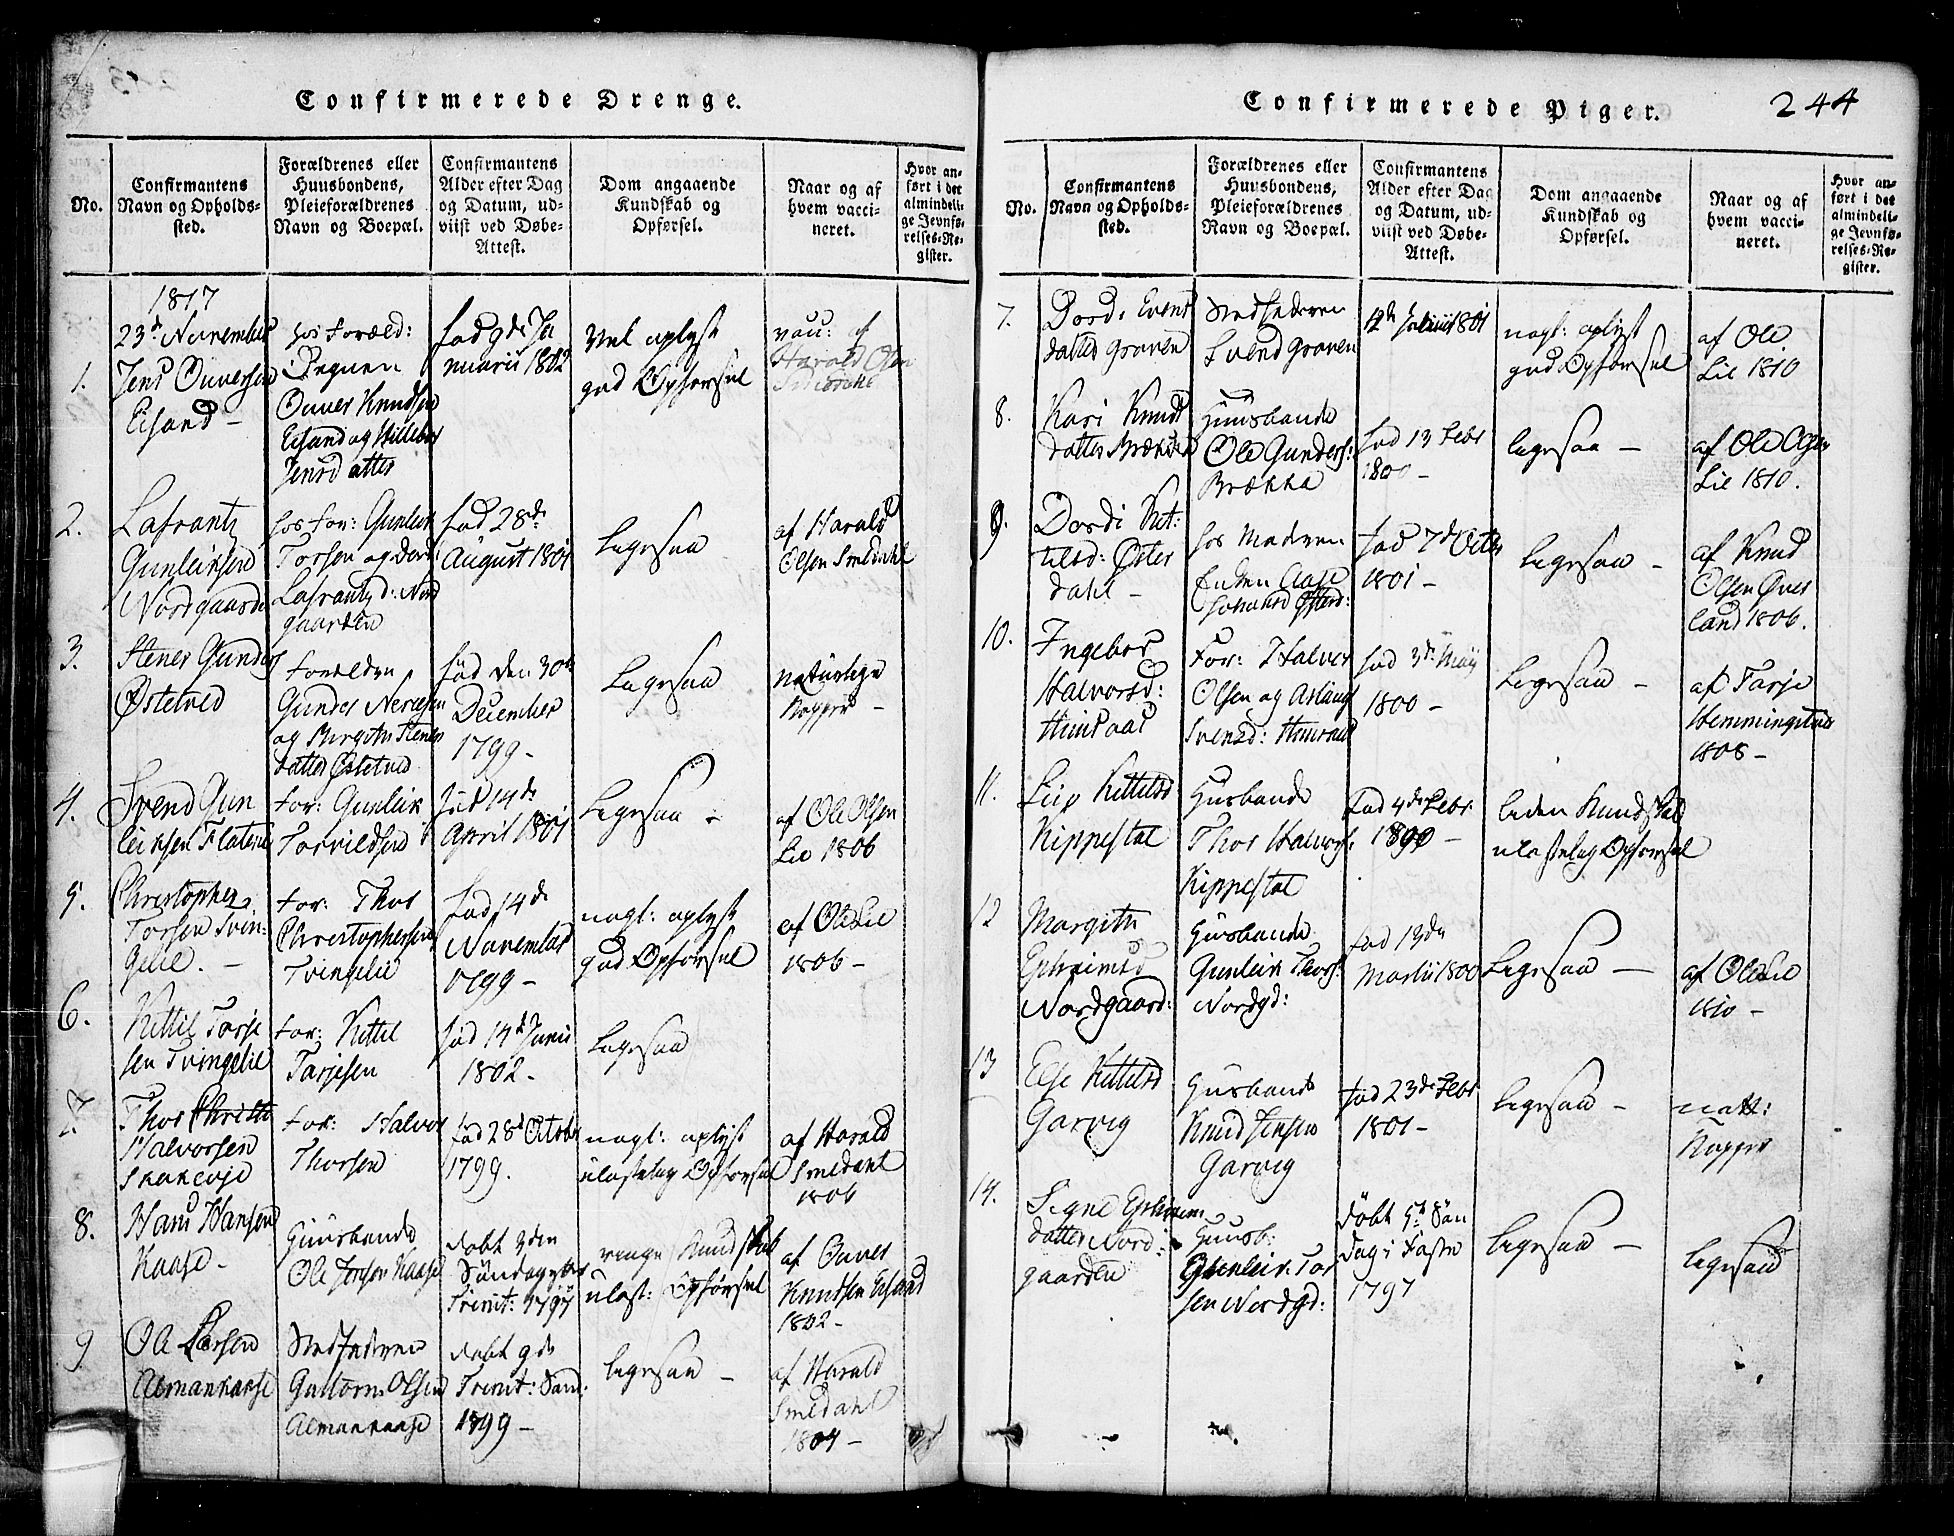 Confirmerede Drenge.
No.
Confirmantens
Navn og Opholds-
sted.
Forældrenes eller
Huusbondens,
Pleieforældrenes
Navn og Boepæl.
Confirmantens
Alder efter Dag
og Datum, ud-
viist ved Døbe-
Attest.
Dom angaaende
Kundskab og
Opførsel.
Naar og af
hvem vacci-
neret.
Hvor an-
ført i det
almindeli-
ge Jevnfø-
relses-Re-
gister.
1817
23d November
1.
Jens Ouversen
Eisand -
hos Foræld:
Degnen
Ouver Knudsen
Eisand og
Jensdatter
fød 9de Ja
nuarii 1802
Vel oplyst
god Opførsel
vacc: af
Harald Olsen
2.
Lafrantz
Gunleiksen
Nordgaarde
hos For: Gunleik
Torsen og Dord:
Lafrantzd: Nord
gaarden
fød 28de
August 1801
Ligesaa
af Harald
Olsen Smedahl
3.
Stener Gunders
Østetved
Forældre
Gunder
og Birgithe Stener
datter Østetved
fød den 30te
December
1799 -
Ligesaa
naturlige
Kopper -
4.
Svend Gun
leiksen Flaterne
For: Gunleik
Torvildsen
fød 14de
April 1801
Ligesaa -
af Ole Olsen
Lie 1806
5.
Christopher
Torsen Tvin-
gelie. -
For: Thor
Christophersen
Tvingelie
fød 14de
November
1799 -
nogl: oplyst
god Opførsel
af Ole Lie
1806 -
6.
Kittil Tarje
sen Tvingelie
For: Kittil
Tarjesen
fød 14de Junii
1802 -
Ligesaa
7.
Thor
Halvorsen
For: Halvor
Thorsen
fød 28d Octobr
1799.
nogl: oplyst
ulastelig Opførsel
af Harald
Smedahl
1806
8.
Hans Hansen
Kaase -
Huusbonde
Ole Jensen Kaase
døbt 3den
Søndag efter
Trinit: 1797
ringe Kundskab
ulast: Opførsel
af Ouver
Knudsen Eisand
1802 -
9
Ole Larsen
Almankaase
Stedfaderen
Guttorm Olsen
Almankaase
døbt 9de
Trinit: Sønd:
1799 -
ligesaa -
af Harald
Smedahl
1804 -
Confirmerede Piger.
244
No.
Confirmantens
Navn og Opholds-
sted.
Forældrenes eller
Huusbondens,
Pleieforældrenes
Navn og Boepæl.
Confirmantens
Alder efter Dag
og Datum, ud-
viist ved Døbe-
Attest.
Dom angaaende
Kundskab og
Opførsel.
Naar og af
hvem vacci-
neret.
Hvor an-
ført i det
almindeli-
ge Jevnfø-
relses-Re-
gister.
7.
Dord: Evens
datter Graven
Stedfaderen
Svend Graven
12te 1801
nogl: oplyst
god Opførsel
af Ole
Lie 1810
8.
Kari Knuds
datter
Huusbonde
Ole Gunders:
Brækka
fød 13 Febr
1800 -
ligesaa -
af Ole Olsen
Lie 1810.
9.
Dordi Kit:
tilsd: Øster
dahl -
hos Moderen
Enken Aase
fød 7d Octbr
1801 -
ligesaa -
af Knud
Olsen Øver
land 1806.
10.
Ingebor
Halvorsd:
For: Halvor
Olsen og Aslaug
Svensd:
fød 3de Maij
1800 -
Ligesaa -
af Tarje
Hemmingstvedt
1808 -
11.
Kittelsd
Kippestøl
Husbonde
Thor Halvors:
Kippestøl
Fød 4de Febr
liden Kundskab
ulastelig Opførsel
12
Margith
Ephraimsd
Nordgaard:
Husbonde
Gunleik Thors:
Nordgd:
fød 13de
Martii 1800
Ligesaa -
af Ole Lie
1810 -
13
Else Kittelsd
Garvig
Husbonde
Knud Jensen
Garvig
fød 23de Febr
1801 -
ligesaa -
natt:
Kopper
14.
Signe Ephraims
datter Nord:
gaarden
Huusb:
Gunleik Tor
sen Nordgd:
døbt 5te Søn
dag i Faste
1797
ligesaa -
ligesaa